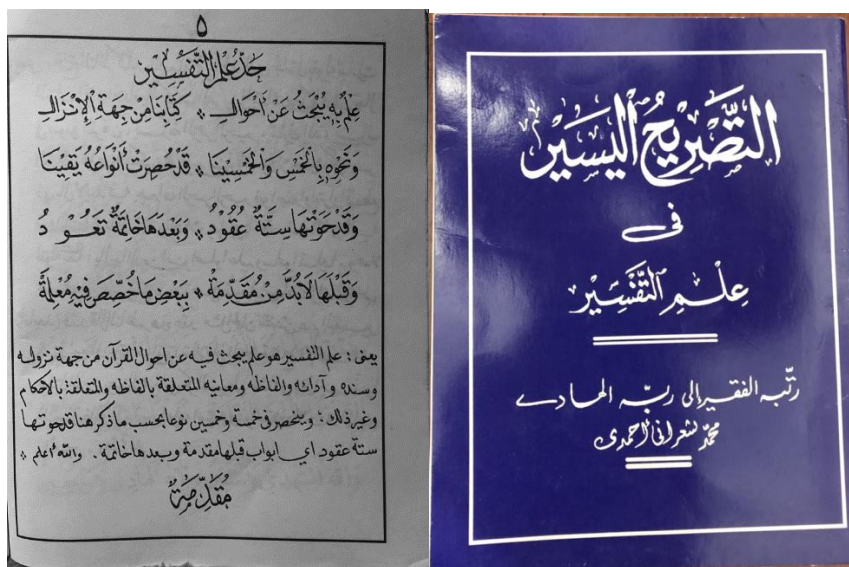 ٥
حَدُّ عِلْمِ التَّفْسِيْرِ
عِلْمٌ بِهِ يُبْحَثُ عَنْ اَحْوَالِ ۞ كِتَابِنَا مِنْ جِهَةِ الْاِنْزَالِ
وَنَحْوِهِ بِالْخَمْسِ وَالْخَمْسِيْنَا ۞ قَدْ حُصِرَتْ أَنْوَاعُهُ يَقِيْنَا
وَقَدْ حَوَتْهَا سِتَّةٌ عُقُوْدُ ۞ وَبَعْدَهَا خَاتِمَةٌ تَعُوْدُ
وَقَبْلَهَا لَابُدَّ مِنْ مُقَدِّمَةْ ۞ بِبَعْضِ مَا خُصِّصَ فِيْهِ مُعْلِمَةْ
يعنى : علم التفسير هو علم يبحث فيه عن احوال القرآن من جهة نزوله
وسنده وآدائه والفاظه ومعانيه المتعلقة بالفاظه والمتعلقة بالأحكام
وغير ذلك ؛ وينحصر فى خمسة وخمسين نوعا بحسب ماذكر هنا قد حوتها
ستة عقود اي ابواب قبلها مقدمة وبعدها خاتمة . والله أعلم ۞
مُقَدِّمَةٌ
التَّصْرِيْحُ الْيَسِيْرُ
فى
عِلْمِ التَّفْسِيْرِ
رتّبه الفقير إلى ربّه الهادى
محمّد شعرانى أحمدى